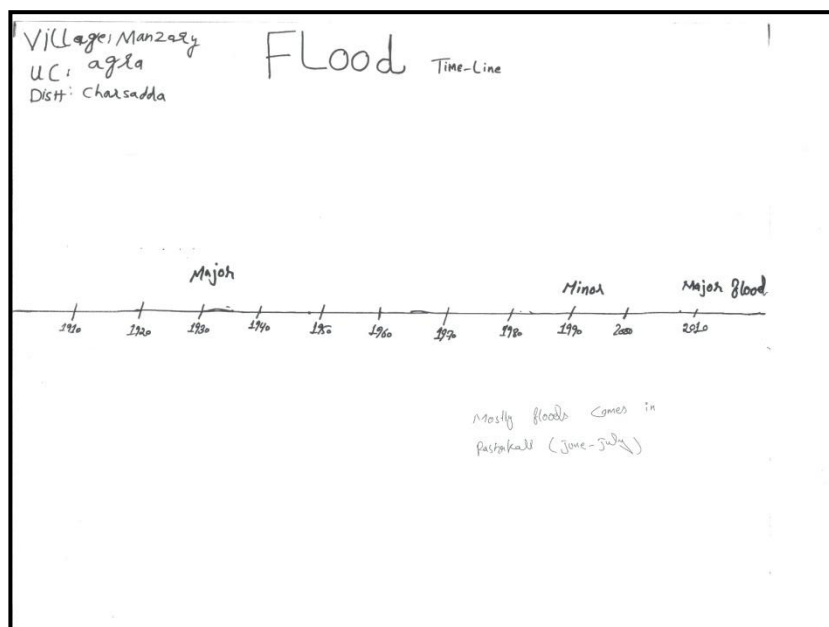 Village: Manzary
UC: agra
Distt: Charsadda
FLood Time-Line
Major
Minor
Major flood
1910 1920 1930 1940 1950 1960 1970 1980 1990 2000 2010
Mostly floods comes in
(june-july)